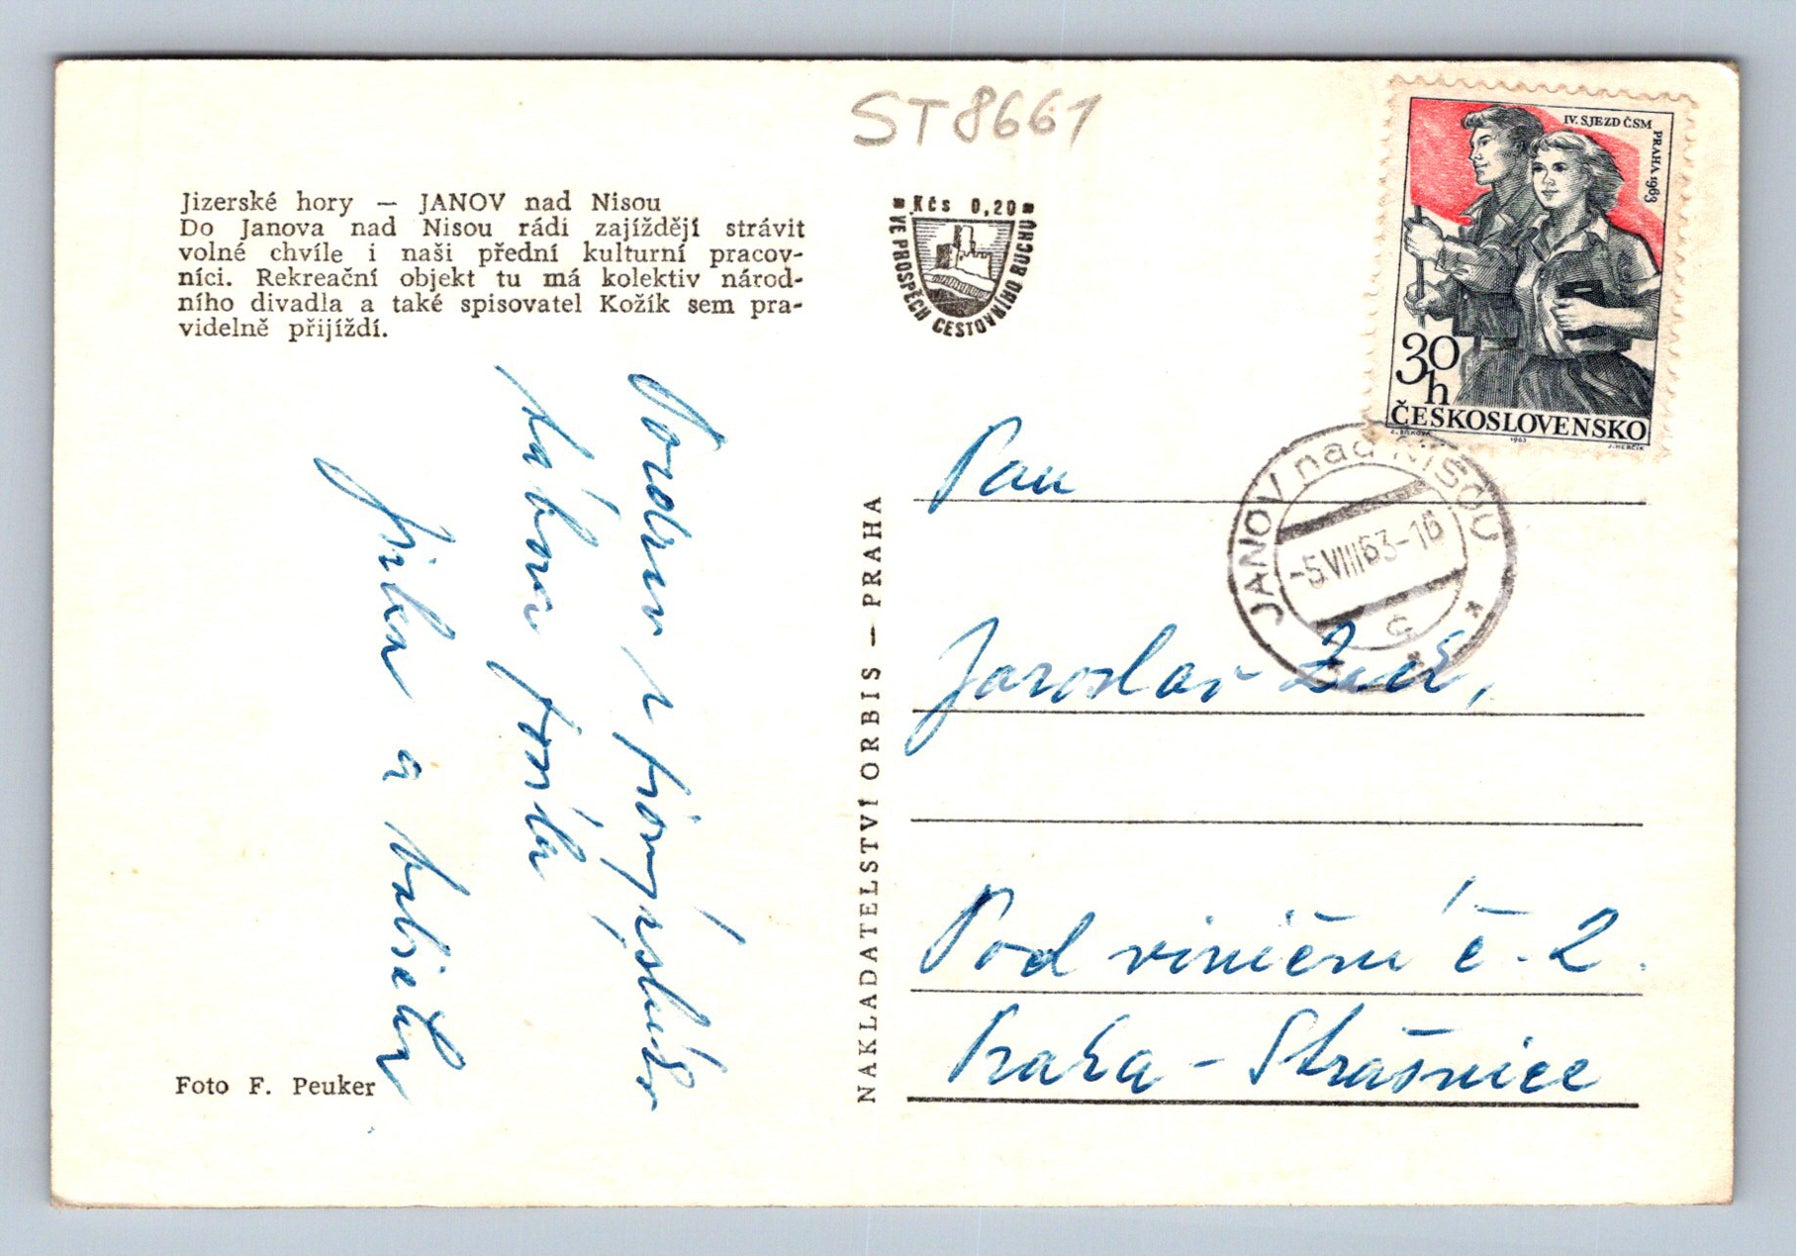 ST8661
Jizerské hory — JANOV nad Nisou
Do Janova nad Nisou rádi zajíždějí strávit
volné chvíle i naši přední kulturní pracov-
níci. Rekreační objekt tu má kolektiv národ-
ního divadla a také spisovatel Kožík sem pra-
videlně přijíždí.
Kčs 0,20
VE PROSPĚCH CESTOVNÍHO RUCHU
IV. SJEZD ČSM
PRAHA 1963
30
h
ČESKOSLOVENSKO
1963
J. HERČÍK
JANOV nad NISOU
-5.VIII63-16
Pozdrav z
tábora
Jirka a
NAKLADATELSTVÍ ORBIS — PRAHA
Pan
Jaroslav
Pod viniční č. 2.
Praha - Strašnice
Foto F. Peuker